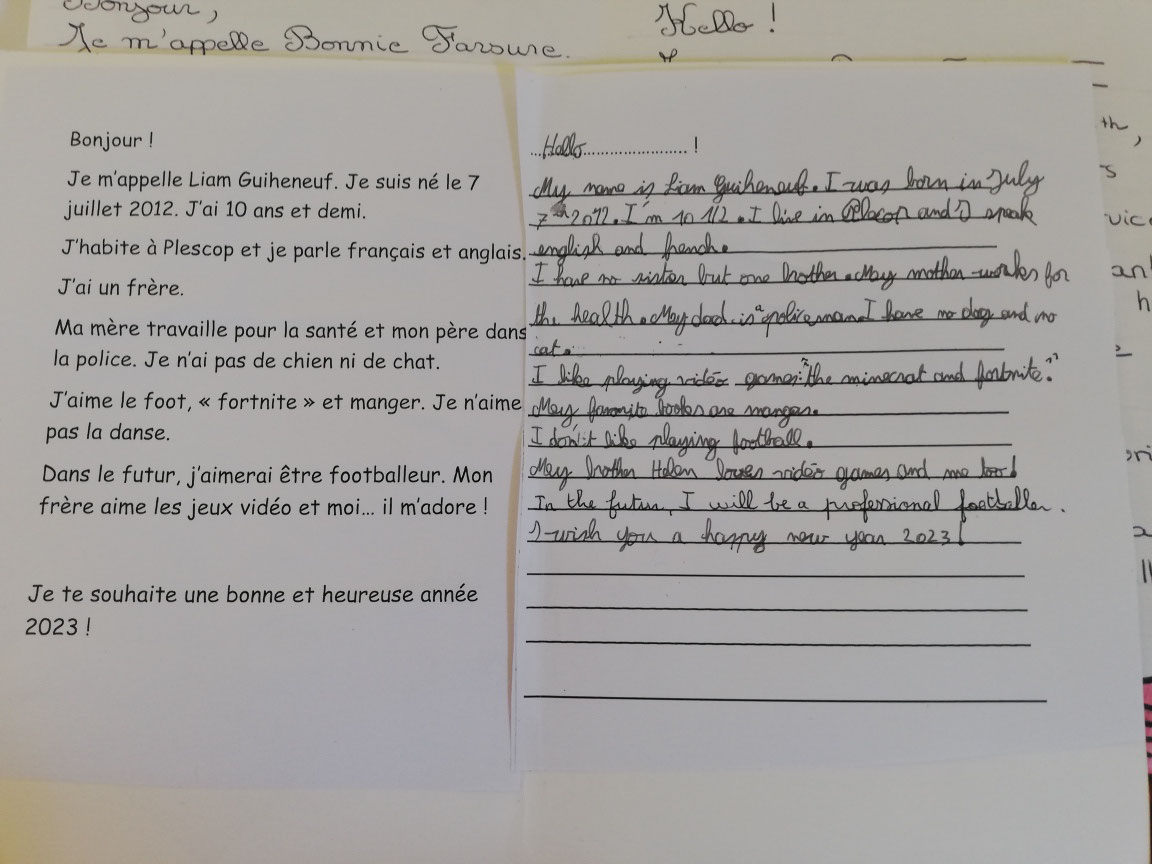 Bonjour,
Je m'appelle Bonnie
Hello !
Bonjour !
Je m'appelle Liam Guiheneuf. Je suis né le 7
juillet 2012. J'ai 10 ans et demi.
J'habite à Plescop et je parle français et anglais.
J'ai un frère.
Ma mère travaille pour la santé et mon père dans
la police. Je n'ai pas de chien ni de chat.
J'aime le foot, « fortnite » et manger. Je n'aime
pas la danse.
Dans le futur, j'aimerai être footballeur. Mon
frère aime les jeux vidéo et moi... il m'adore !
Je te souhaite une bonne et heureuse année
2023 !
...Hello...................... !
My name is Liam Guiheneuf. I was born in July
7th 2012. I'm 10 1/2. I live in Plescop and I speak
english and french.
I have no sister but one brother. My mother works for
the health. My dad is a policeman I have no dog and no
cat.
I like playing vidéo games: "the minecrat and fortnite."
My favorite books are mangas.
I don't like playing football.
My brother loves vidéo games and me too!
In the futur, I will be a professional footballer.
I wish you a happy new year 2023!